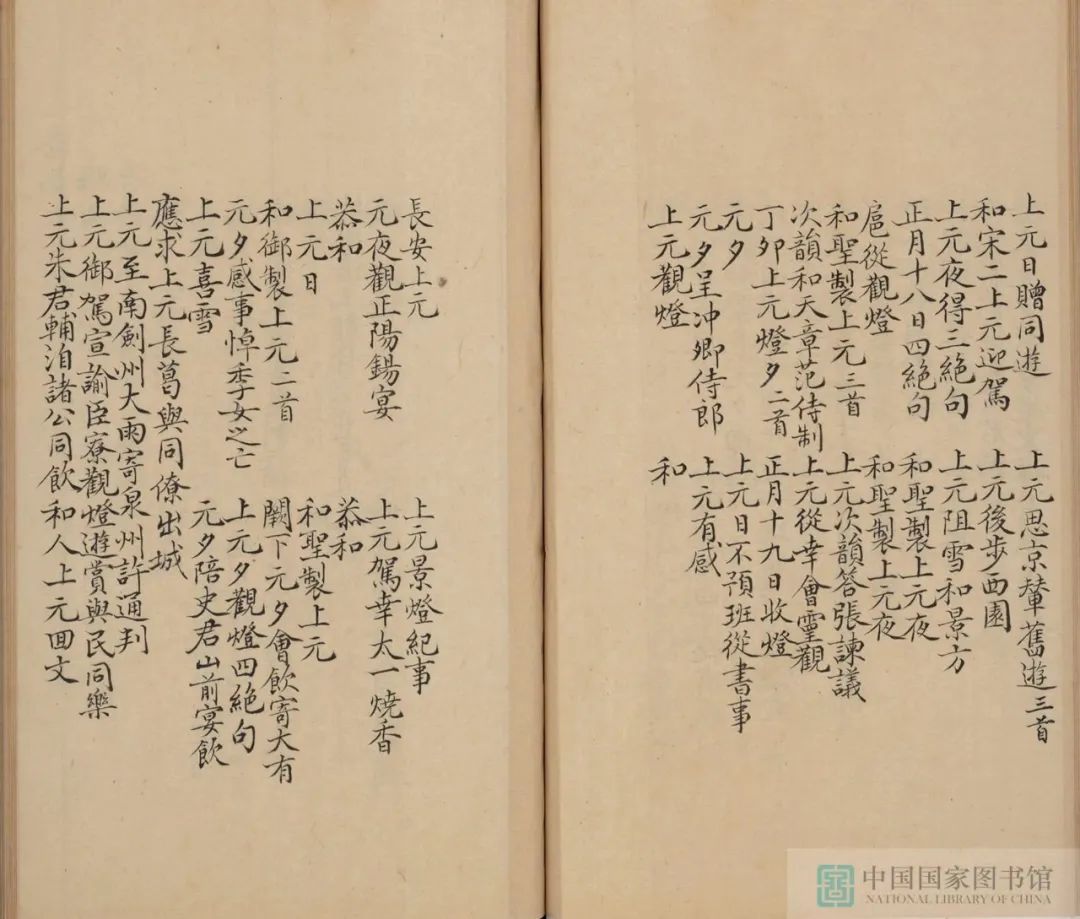 上元日贈同遊
上元思京輦舊遊三首
和宋二上元迎駕
上元後步西園
上元夜得三絕句
上元阻雪和景方
正月十八日四絕句
和聖製上元夜
扈從觀燈
和聖製上元夜
和聖製上元三首
上元次韻答張諫議
次韻和天章范侍制
上元從幸會靈觀
丁夘上元燈夕二首
正月十九日收燈
元夕
上元日不預班從書事
元夕呈冲卿侍郎
上元有感
上元觀燈
和
長安上元
上元景燈紀事
元夜觀正陽錫宴
上元駕幸太一燒香
恭和
恭和
上元日
和聖製上元
和御製上元二首
闕下元夕會飲寄大有
元夕感事悼季女之亡
上元夕觀燈四絕句
上元喜雪
元夕陪史君山前宴飲
應求上元長葛與同僚出城
上元至南劍州大雨寄泉州許通判
上元御駕宣諭臣寮觀燈遊賞與民同樂
上元朱君輔洎諸公同飲
和人上元回文
中国国家图书馆
NATIONAL LIBRARY OF CHINA